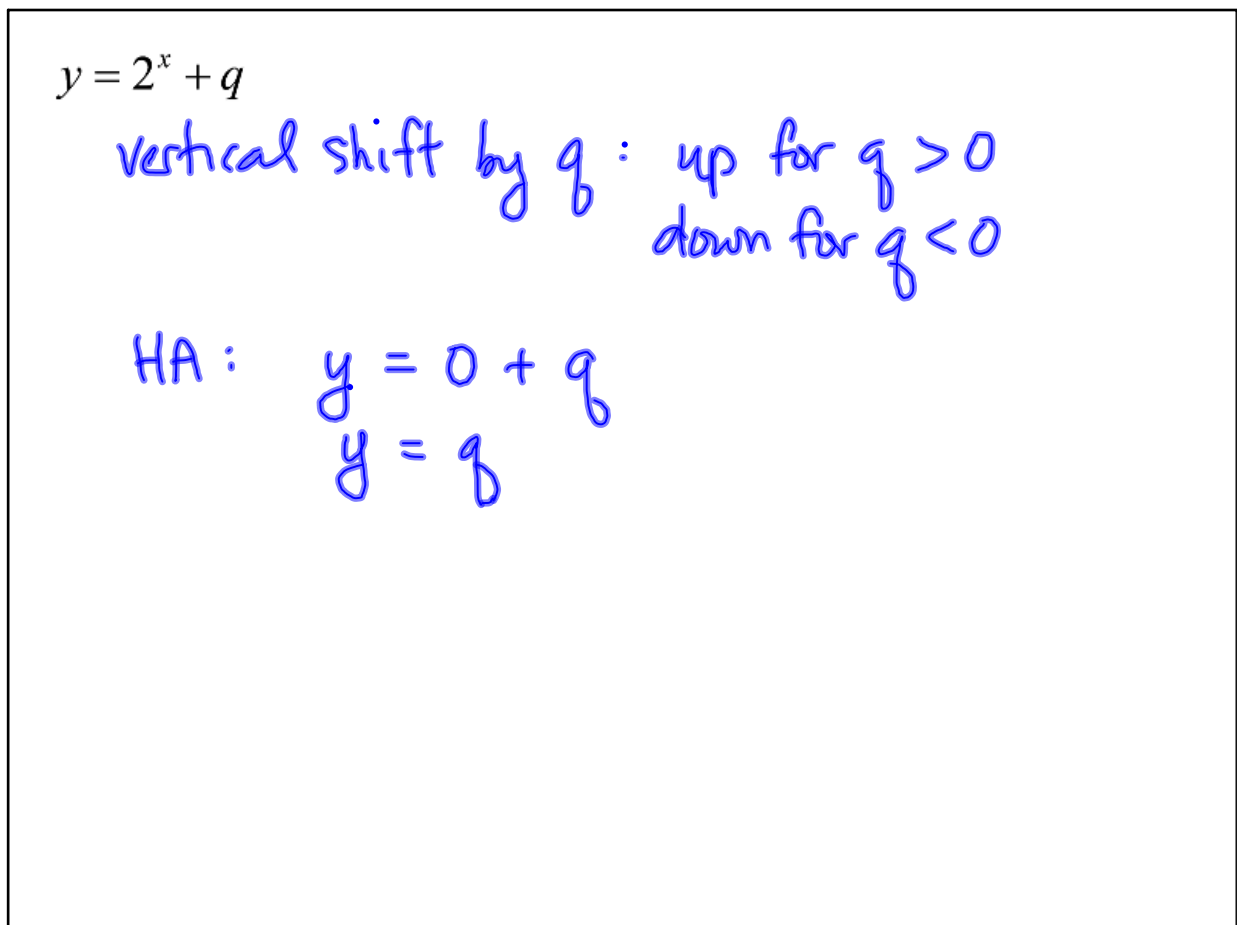 y = 2^x + q
vertical shift by q : up for q > 0
down for q < 0
HA : y = 0 + q
y = q